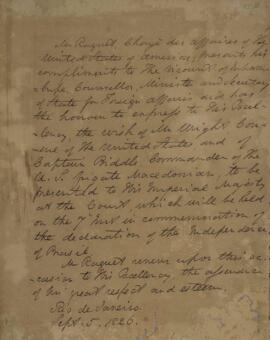 Mr Raguet Chargé des Affaires of the
United States of America, presents his
compliments to the Viscount of Inham-
bupe, Counsellor, Minister and Secretary
of State for Foreign Affairs and has
the honour to express to His Excel-
lency the wish of Mr Wright Con-
sul of the United States and of
Captain Biddle Commander of the
U.S. frigate Macedonian, to be
presented to His Imperial Majesty
at the Court which will be held
on the 7 inst in commemoration of
the declaration of the Independence
of Brazil.
Mr Raguet renews upon this oc-
casion to His Excellency the assurance
of his great respect and esteem.
Rio de Janeiro
Sept. 5. 1826.